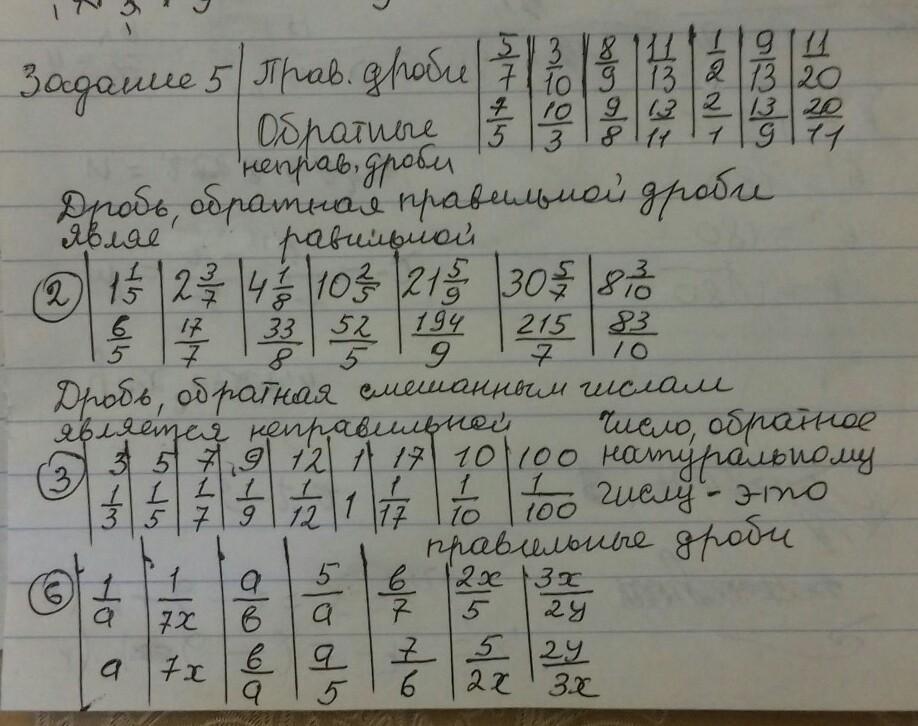 Задание 5 | Прав. дроби | 5/7 | 3/10 | 8/9 | 11/13 | 1/2 | 9/13 | 11/20
Обратные | 7/5 | 10/3 | 9/8 | 13/11 | 2/1 | 13/9 | 20/11
неправ. дроби
Дробь, обратная правильной дроби
являе равильной
② | 1 1/5 | 2 3/7 | 4 1/8 | 10 2/5 | 21 5/9 | 30 5/7 | 8 3/10
6/5 | 17/7 | 33/8 | 52/5 | 194/9 | 215/7 | 83/10
Дробь, обратная смешанным числам
является неправильной
③ | 3 | 5 | 7 | 9 | 12 | 1 | 17 | 10 | 100
1/3 | 1/5 | 1/7 | 1/9 | 1/12 | 1 | 1/17 | 1/10 | 1/100
Число, обратное
натуральному
числу - это
правильные дроби
⑥ | 1/a | 1/7x | a/в | 5/a | в/7 | 2x/5 | 3x/2y
a | 7x | в/a | a/5 | 7/в | 5/2x | 2y/3x